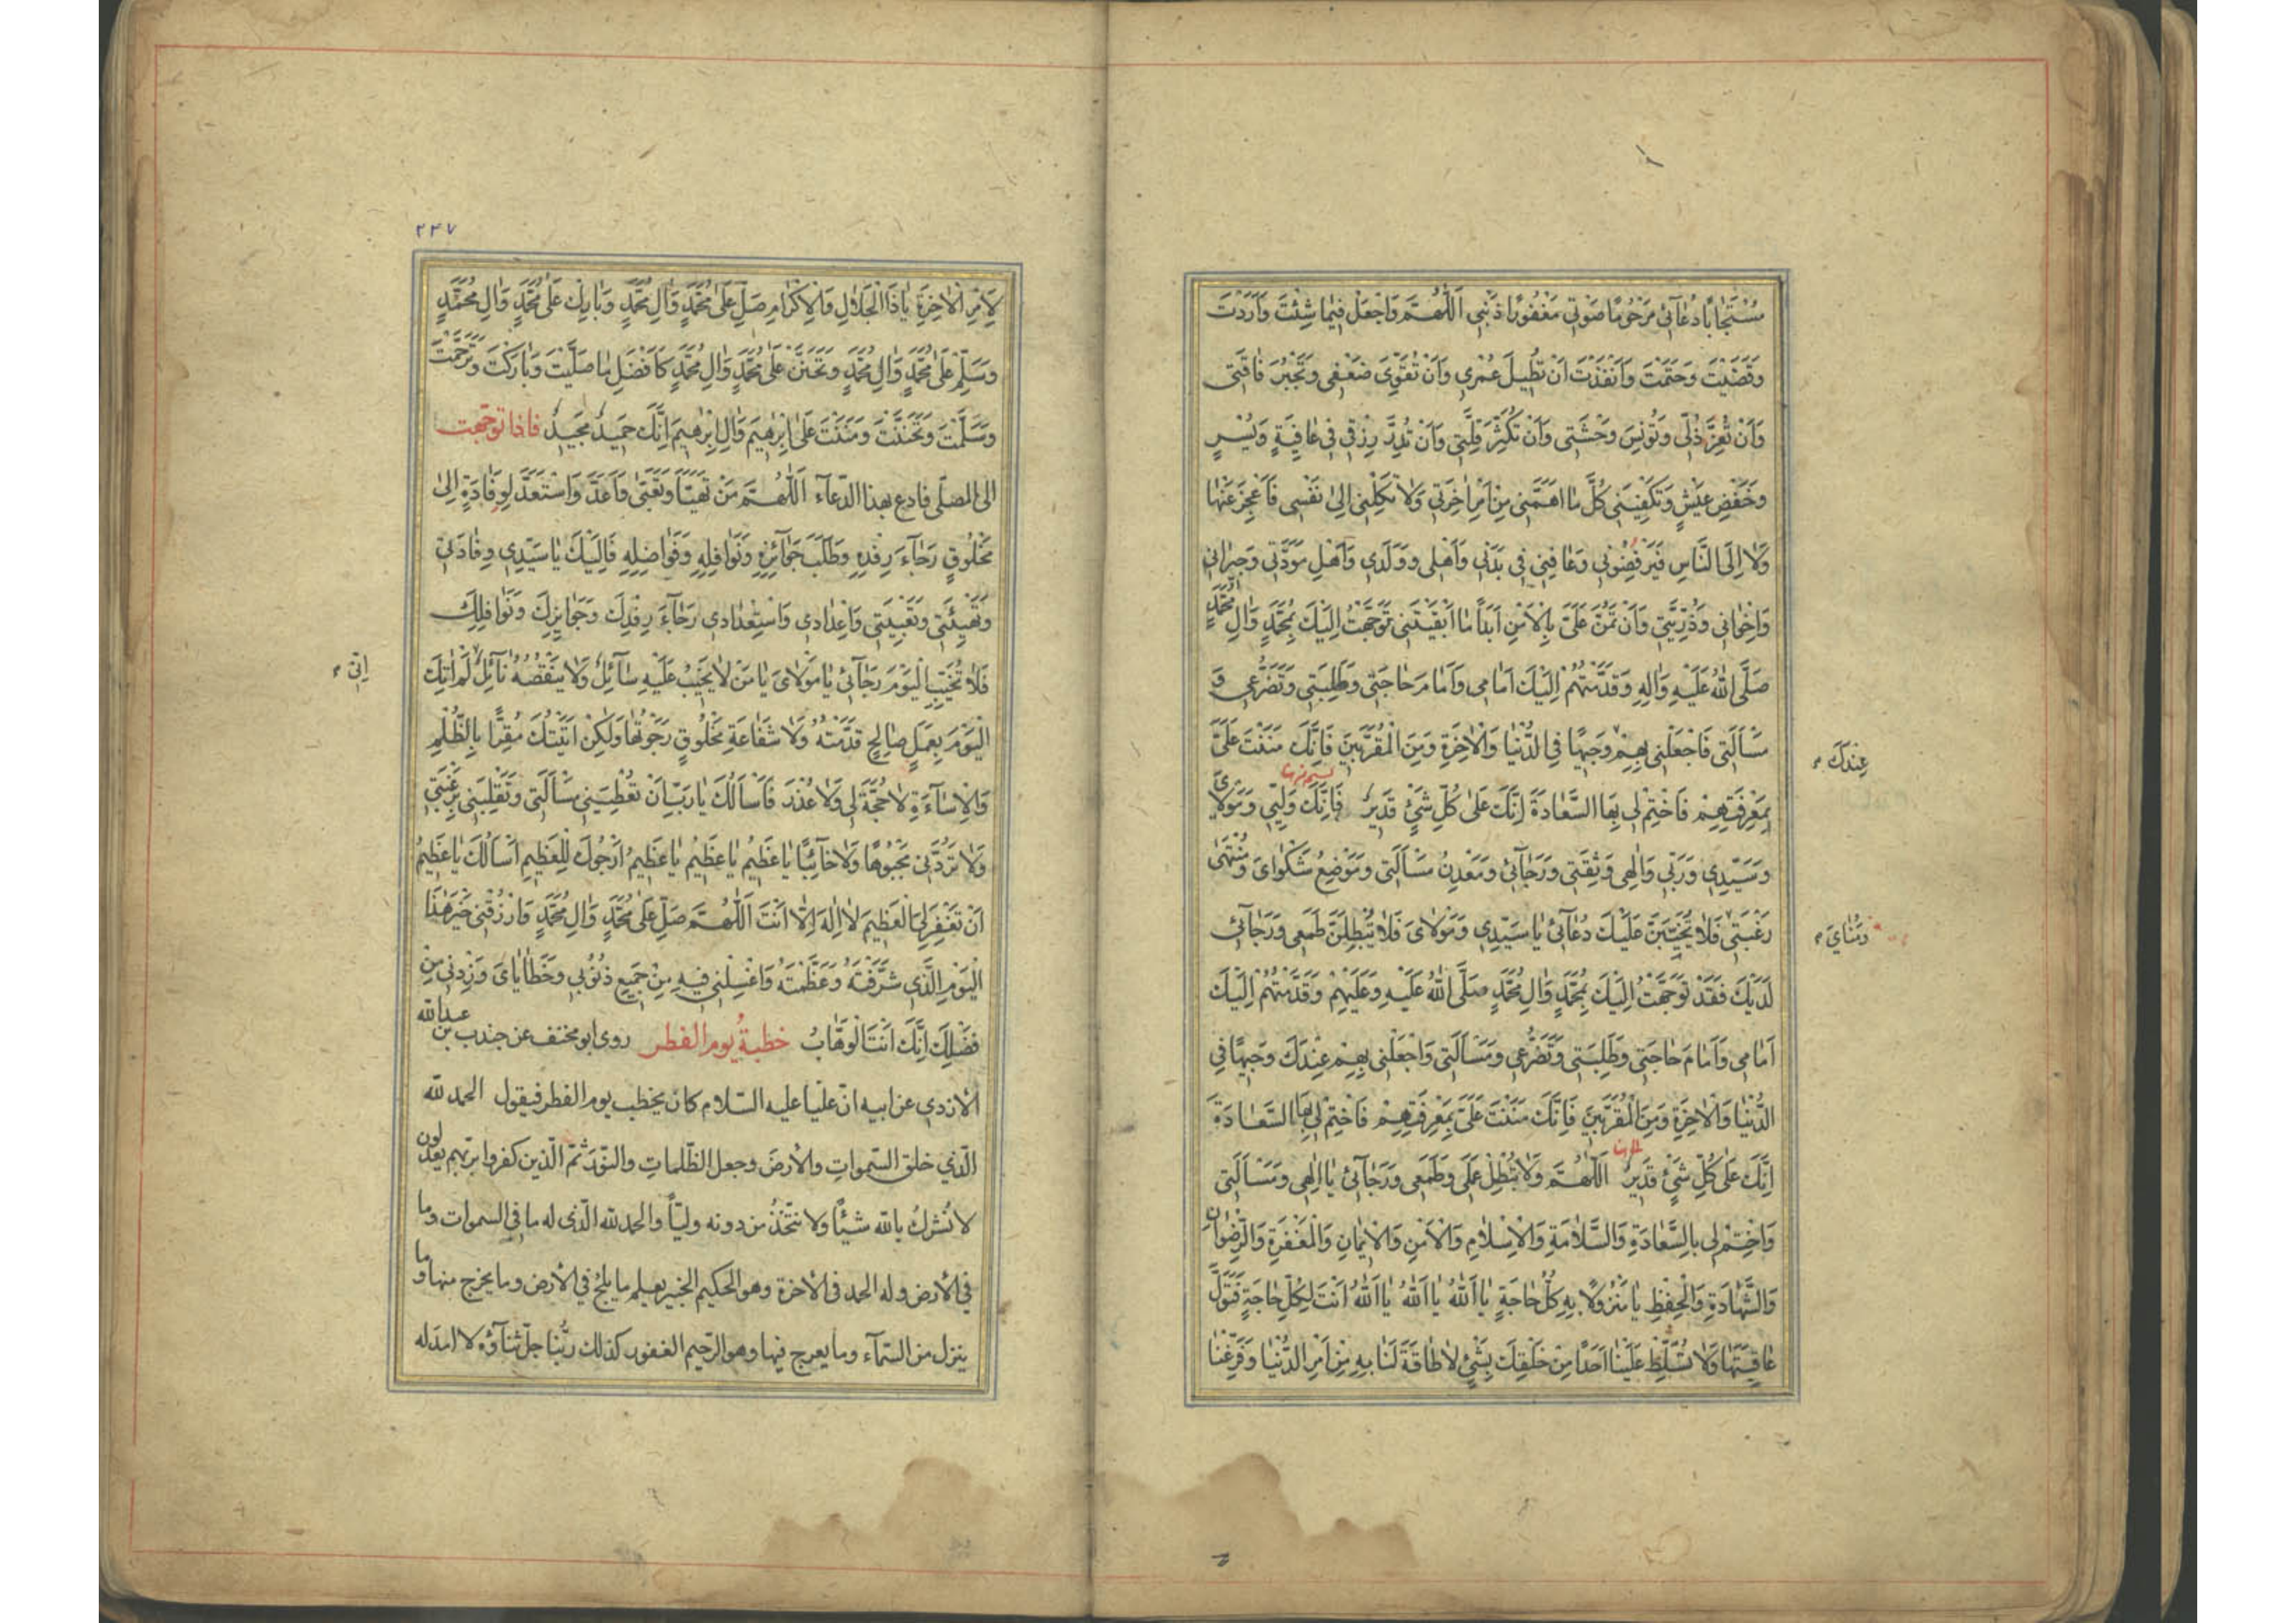 مُسْتَجَابًا دُعَآئِي مَرْحُومًا صَوْتِي مَغْفُورًا ذَنْبِي اَللّٰهُمَّ وَاجْعَلْ فِيمَا شِئْتَ وَاَرَدْتَ
وَقَضَيْتَ وَحَتَمْتَ وَاَنْفَذْتَ اَنْ تُطِيلَ عُمْرِي وَاَنْ تُقَوِّيَ ضَعْفِي وَتَجْبُرَ فَاقَتِي
وَاَنْ تُعِزَّ ذُلِّي وَتُونِسَ وَحْشَتِي وَاَنْ تُكَثِّرَ قِلَّتِي وَاَنْ تُدِرَّ رِزْقِي فِي عَافِيَةٍ وَيُسْرٍ
وَخَفْضِ عَيْشٍ وَتَكْفِيَنِي كُلَّ مَا اَهَمَّنِي مِنْ اَمْرِ اٰخِرَتِي وَلَا تَكِلْنِي اِلىٰ نَفْسِي فَاَعْجِزَ عَنْهَا
وَلَا اِلَى النَّاسِ فَيَرْفُضُونِي وَعَافِنِي فِي بَدَنِي وَاَهْلِي وَوَلَدِي وَاَهْلِ مَوَدَّتِي وَجِيرَانِي
وَاِخْوَانِي وَذُرِّيَّتِي وَاَنْ تَمُنَّ عَلَيَّ بِالْاَمْنِ اَبَدًا مَا اَبْقَيْتَنِي تَوَجَّهْتُ اِلَيْكَ بِمُحَمَّدٍ وَاٰلِ مُحَمَّدٍ
صَلَّى اللّٰهُ عَلَيْهِ وَاٰلِهِ وَقَدَّمْتُهُمْ اِلَيْكَ اَمَامِي وَاَمَامَ حَاجَتِي وَطَلِبَتِي وَتَضَرُّعِي وَ
مَسْاَلَتِي فَاجْعَلْنِي بِهِمْ وَجِيهًا فِي الدُّنْيَا وَالْاٰخِرَةِ وَمِنَ الْمُقَرَّبِينَ فَاِنَّكَ مَنَنْتَ عَلَيَّ
عِنْدَكَ
بِمَعْرِفَتِهِمْ فَاخْتِمْ لِي بِهَا السَّعَادَةَ اِنَّكَ عَلىٰ كُلِّ شَيْءٍ قَدِيرٌ فَاِنَّكَ وَلِيِّي وَمَوْلَايَ
وَسَيِّدِي وَرَبِّي وَاِلٰهِي وَثِقَتِي وَرَجَآئِي وَمَعْدِنُ مَسْاَلَتِي وَمَوْضِعُ شَكْوَايَ وَمُنْتَهىٰ
رَغْبَتِي فَلَا تُخَيِّبَنَّ عَلَيْكَ دُعَآئِي يَا سَيِّدِي وَمَوْلَايَ فَلَا تُبْطِلَنَّ طَمَعِي وَرَجَآئِي
وَمُنَايَ
لَدَيْكَ فَقَدْ تَوَجَّهْتُ اِلَيْكَ بِمُحَمَّدٍ وَاٰلِ مُحَمَّدٍ صَلَّى اللّٰهُ عَلَيْهِ وَعَلَيْهِمْ وَقَدَّمْتُهُمْ اِلَيْكَ
اَمَامِي وَاَمَامَ حَاجَتِي وَطَلِبَتِي وَتَضَرُّعِي وَمَسْاَلَتِي وَاجْعَلْنِي بِهِمْ عِنْدَكَ وَجِيهًا فِي
الدُّنْيَا وَالْاٰخِرَةِ وَمِنَ الْمُقَرَّبِينَ فَاِنَّكَ مَنَنْتَ عَلَيَّ بِمَعْرِفَتِهِمْ فَاخْتِمْ لِي بِهَا السَّعَادَةَ
اِنَّكَ عَلىٰ كُلِّ شَيْءٍ قَدِيرٌ اَللّٰهُمَّ وَلَا تُبْطِلْ عَمَلِي وَطَمَعِي وَرَجَآئِي يَا اِلٰهِي وَمَسْاَلَتِي
وَاخْتِمْ لِي بِالسَّعَادَةِ وَالسَّلَامَةِ وَالْاِسْلَامِ وَالْاَمْنِ وَالْاِيمَانِ وَالْمَغْفِرَةِ وَالرِّضْوَانِ
وَالشَّهَادَةِ وَالْحِفْظِ يَا مَنْزُولًا بِهِ كُلُّ حَاجَةٍ يَا اَللّٰهُ يَا اَللّٰهُ يَا اَللّٰهُ اَنْتَ لِكُلِّ حَاجَةٍ فَتَوَلَّ
عَاقِبَتَهَا وَلَا تُسَلِّطْ عَلَيْنَا اَحَدًا مِنْ خَلْقِكَ بِشَيْءٍ لَا طَاقَةَ لَنَا بِهِ مِنْ اَمْرِ الدُّنْيَا وَفَرِّغْنَا
٢٢٧
لِاَمْرِ الْاٰخِرَةِ يَا ذَا الْجَلَالِ وَالْاِكْرَامِ صَلِّ عَلىٰ مُحَمَّدٍ وَاٰلِ مُحَمَّدٍ وَبَارِكْ عَلىٰ مُحَمَّدٍ وَاٰلِ مُحَمَّدٍ
وَسَلِّمْ عَلىٰ مُحَمَّدٍ وَاٰلِ مُحَمَّدٍ وَتَحَنَّنْ عَلىٰ مُحَمَّدٍ وَاٰلِ مُحَمَّدٍ كَاَفْضَلِ مَا صَلَّيْتَ وَبَارَكْتَ وَتَرَحَّمْتَ
وَسَلَّمْتَ وَتَحَنَّنْتَ وَمَنَنْتَ عَلىٰ اِبْرٰهِيمَ وَاٰلِ اِبْرٰهِيمَ اِنَّكَ حَمِيدٌ مَجِيدٌ فاذا توجّهت
الى المصلّى فادع بهذا الدّعآء اَللّٰهُمَّ مَنْ تَهَيَّاَ وَتَعَبَّىٰ وَاَعَدَّ وَاسْتَعَدَّ لِوِفَادَةٍ اِلىٰ
مَخْلُوقٍ رَجَآءَ رِفْدِهِ وَطَلَبَ جَوَآئِزِهِ وَنَوَافِلِهِ وَفَوَاضِلِهِ فَاِلَيْكَ يَا سَيِّدِي وِفَادَتِي
وَتَهْيِئَتِي وَتَعْبِيَتِي وَاِعْدَادِي وَاسْتِعْدَادِي رَجَآءَ رِفْدِكَ وَجَوَايِزِكَ وَنَوَافِلِكَ
فَلَا تُخَيِّبِ الْيَوْمَ رَجَآئِي يَا مَوْلَايَ يَا مَنْ لَا يَخِيبُ عَلَيْهِ سَآئِلٌ وَلَا يَنْقُصُهُ نَآئِلٌ لَمْ اٰتِكَ
اِنّي
الْيَوْمَ بِعَمَلٍ صَالِحٍ قَدَّمْتُهُ وَلَا شَفَاعَةِ مَخْلُوقٍ رَجَوْتُهَا وَلٰكِنْ اَتَيْتُكَ مُقِرًّا بِالظُّلْمِ
وَالْاِسَآءَةِ لَا حُجَّةَ لِي وَلَا عُذْرَ فَاَسْاَلُكَ يَا رَبِّ اَنْ تُعْطِيَنِي مَسْاَلَتِي وَتَقْلِبَنِي بِرَغْبَتِي
وَلَا تَرُدَّنِي مَجْبُوهًا وَلَا خَآئِبًا يَا عَظِيمُ يَا عَظِيمُ يَا عَظِيمُ اَرْجُوكَ لِلْعَظِيمِ اَسْاَلُكَ يَا عَظِيمُ
اَنْ تَغْفِرَ لِيَ الْعَظِيمَ لَا اِلٰهَ اِلَّا اَنْتَ اَللّٰهُمَّ صَلِّ عَلىٰ مُحَمَّدٍ وَاٰلِ مُحَمَّدٍ وَارْزُقْنِي خَيْرَ هٰذَا
الْيَوْمِ الَّذِي شَرَّفْتَهُ وَعَظَّمْتَهُ وَاغْسِلْنِي فِيهِ مِنْ جَمِيعِ ذُنُوبِي وَخَطَايَايَ وَزِدْنِي مِنْ
فَضْلِكَ اِنَّكَ اَنْتَ الْوَهَّابُ خطبة يوم الفطر روى ابو مخنف عن جندب بن عبدالله
الازدي عن ابيه انّ عليّا عليه السّلام كان يخطب يوم الفطر فيقول الحمد لله
الّذي خلق السّموات والأرض وجعل الظّلمات والنّور ثمّ الّذين كفروا بربّهم يعدلون
لا نُشرك بالله شيئاً ولا نتّخذ من دونه وليّاً والحمد لله الّذي له ما في السموات وما
في الأرض وله الحمد في الأخرة وهو الحكيم الخبير يعلم ما يلجُ في الأرض وما يخرج منها وما
ينزل من السّمآء وما يعرج فيها وهو الرّحيم الغفور كذلك ربُّنا جلّ ثنآؤه لا امد له